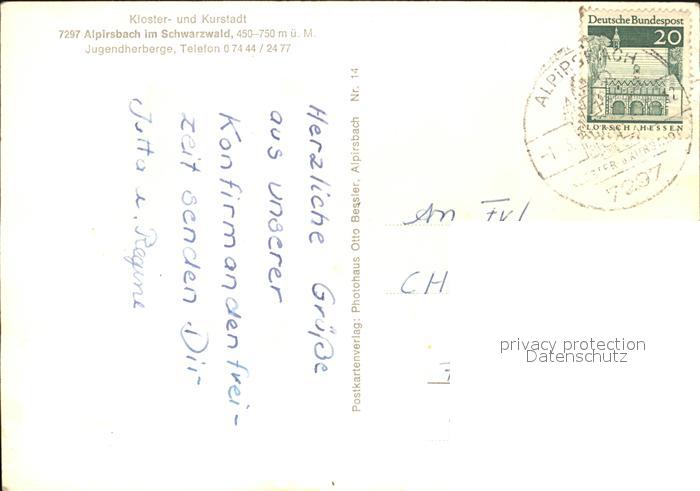 Kloster- und Kurstadt
7297 Alpirsbach im Schwarzwald, 450–750 m ü. M.
Jugendherberge, Telefon 0 74 44 / 24 77
Herzliche Grüße
aus unserer
Konfirmandenfrei-
zeit senden Dir
Jutta u. Regine
Postkartenverlag: Photohaus Otto Bessler, Alpirsbach Nr. 14
Deutsche Bundespost
20
LORSCH/HESSEN
ALPIRSBACH
7297
An Frl
CH
privacy protection
Datenschutz